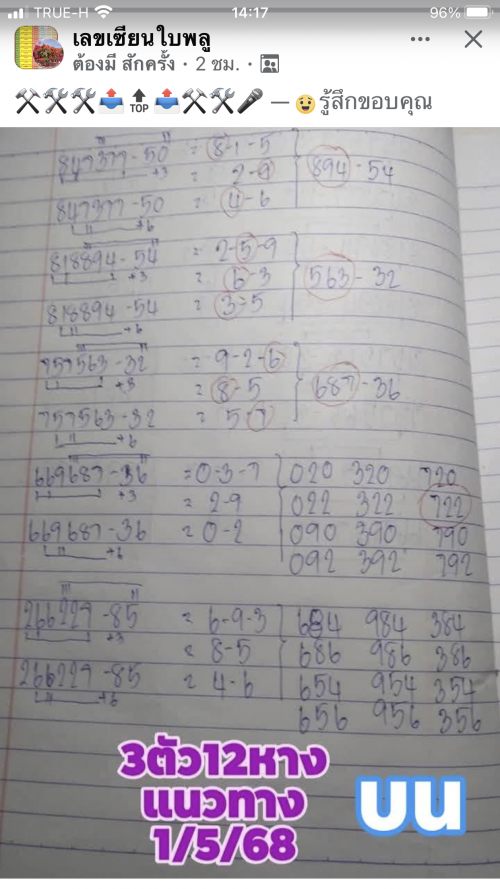 TRUE-H 14:17 96%
เลขเซียนใบพลู
ต้องมี สักครั้ง · 2 ชม. ·
TOP — รู้สึกขอบคุณ
847377-50 = 8-1-5
+3 = 2-9 894-54
847377-50 = 4-6
+6
818894-54 = 2-5-9
+3 = 6-3 563-32
818894-54 = 3-5
+6
757563-32 = 9-2-6
+3 = 8-5 687-36
757563-32 = 5-7
+6
669687-36 = 0-3-7 020 320 720
+3 = 2-9 022 322 722
669687-36 = 0-2 090 390 790
+6 092 392 792
266227-85 = 6-9-3 684 984 384
+3 = 8-5 686 986 386
266227-85 = 4-6 654 954 354
+6 656 956 356
3ตัว12หาง
แนวทาง บน
1/5/68